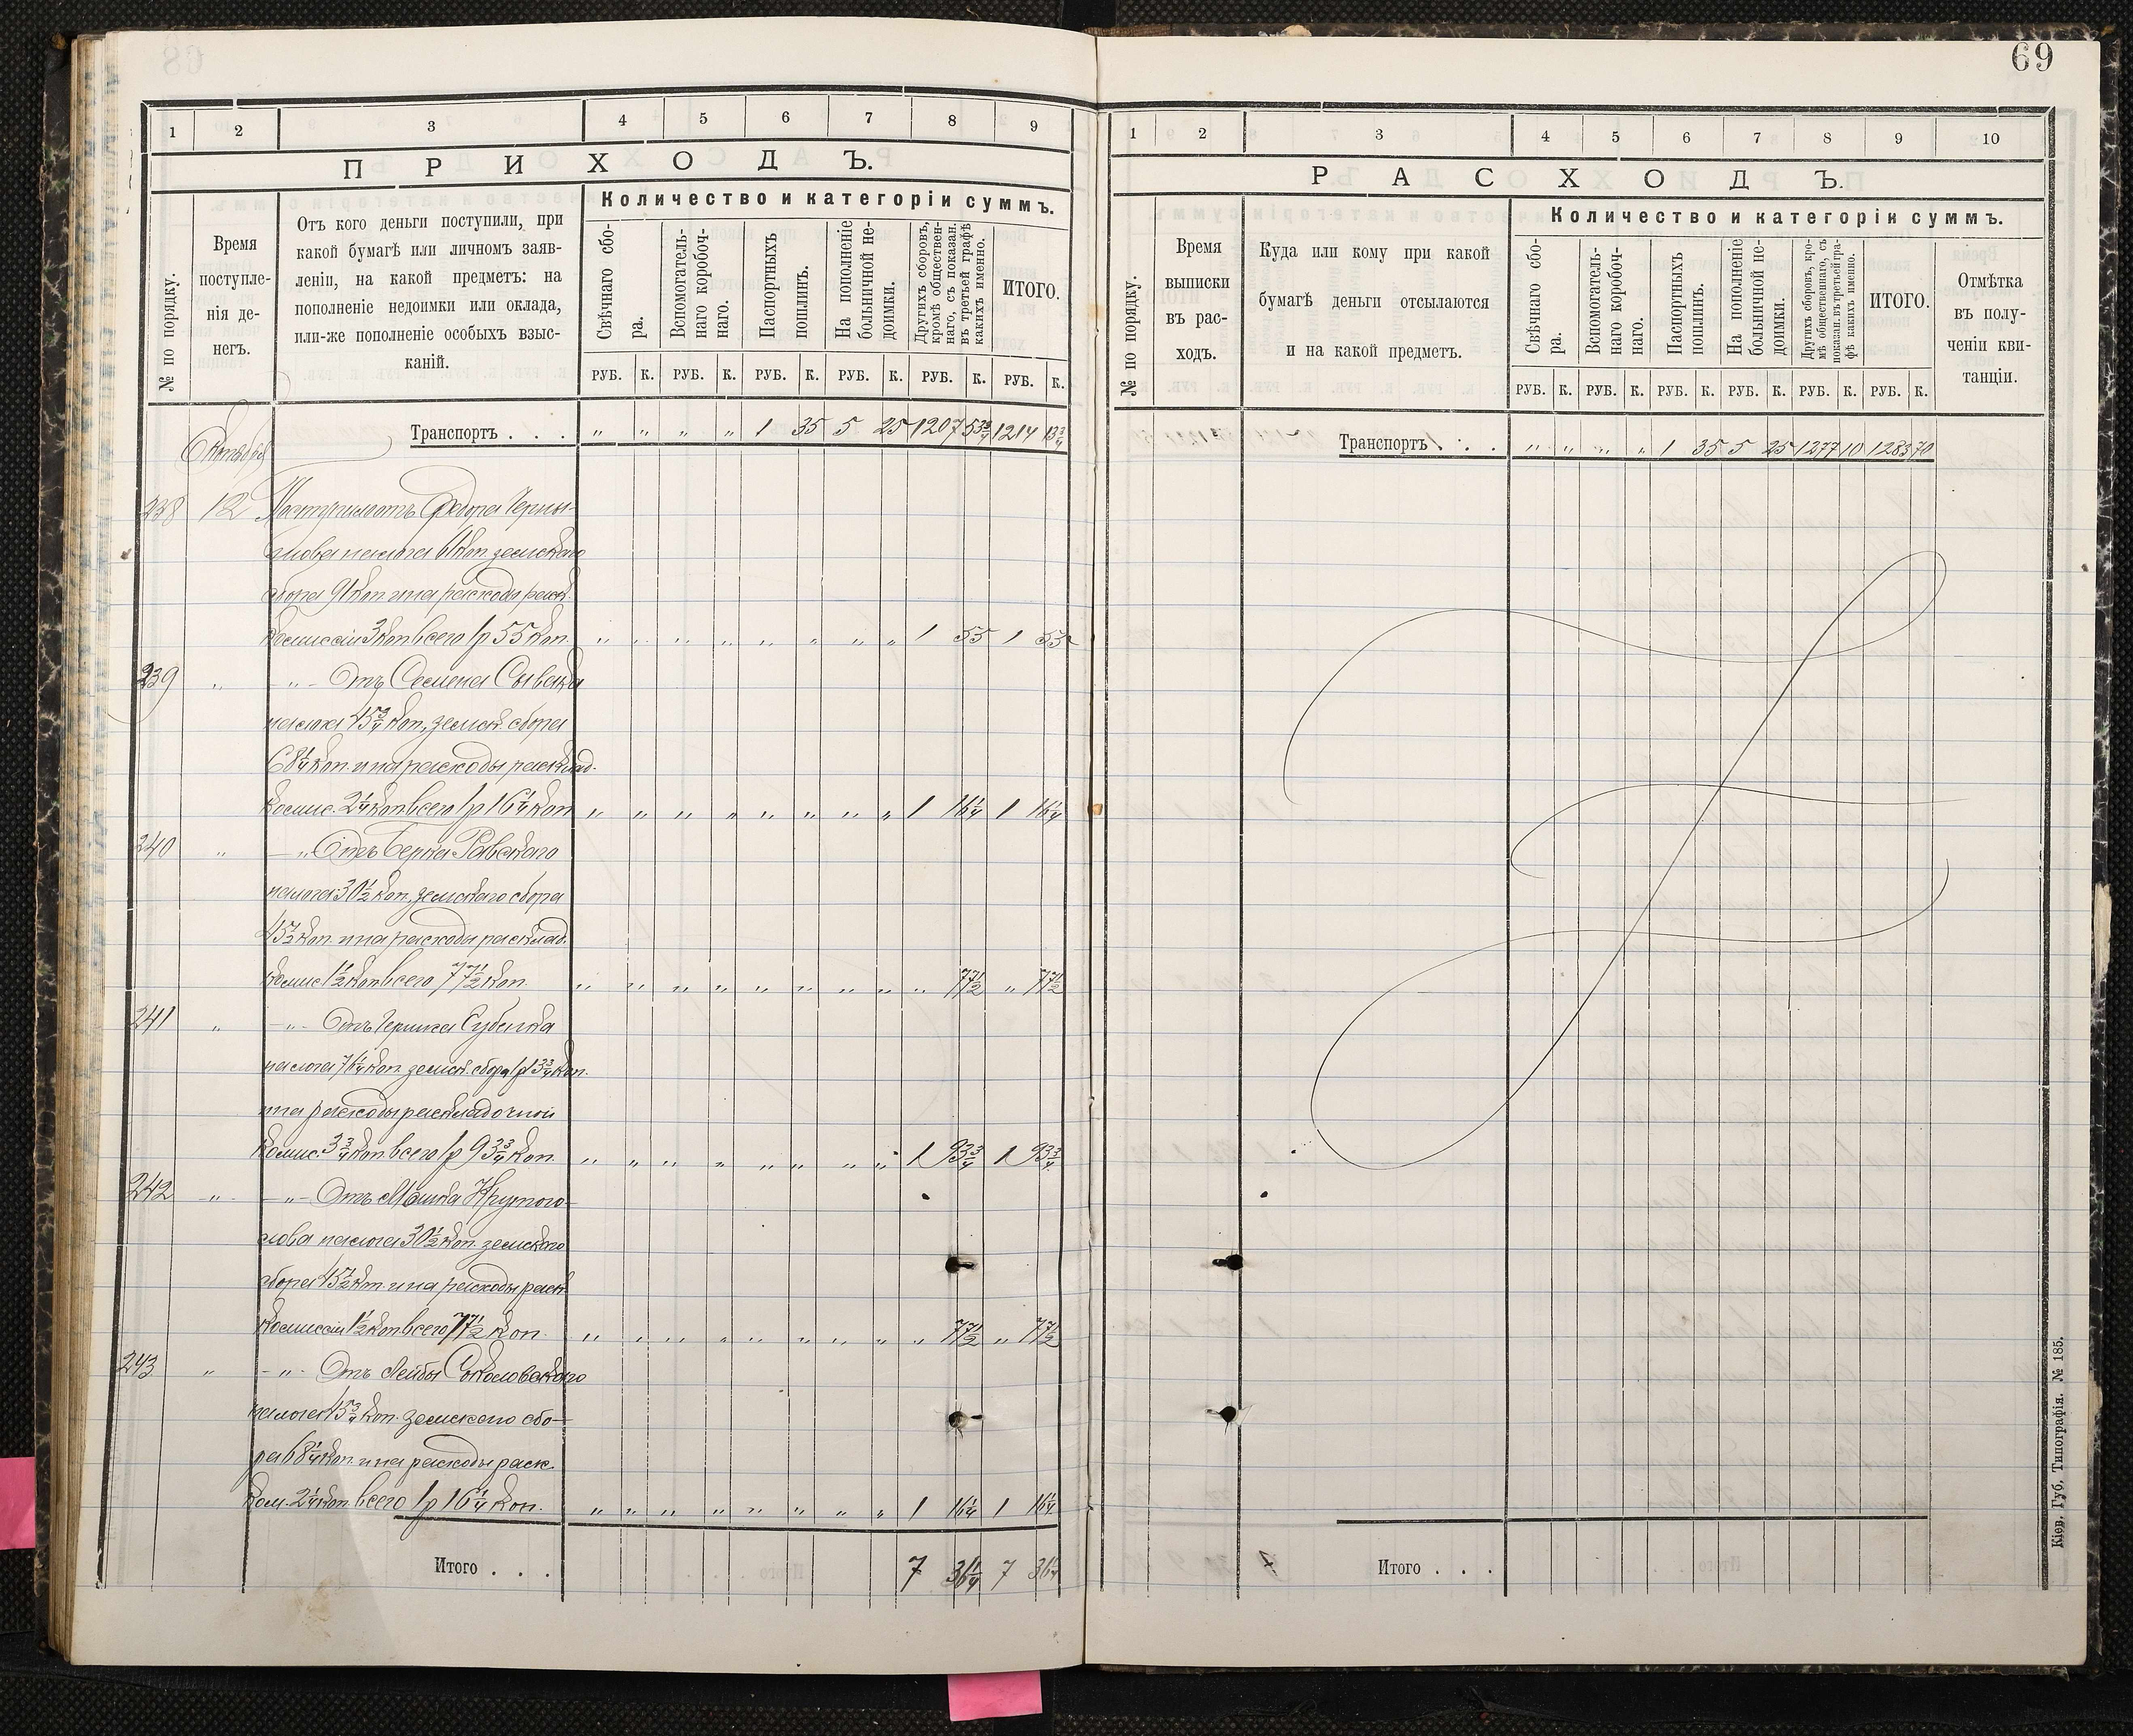 1 2 3 4 5 6 7 8 9
ПРИХОДЪ.
№ по порядку.
Время поступле-
нія де-
негъ.
Отъ кого деньги поступили, при
какой бумагѣ или личномъ заяв-
леніи, на какой предметъ: на
пополненіе недоимки или оклада,
или-же пополненіе особыхъ взыс-
каній.
Количество и категоріи суммъ.
Свѣчнаго сбо-
ра.
Вспомогатель-
наго коробоч-
наго.
Паспортныхъ
пошлинъ.
На пополненіе
больничной не-
доимки.
Другихъ сборовъ,
кромѣ обществен-
наго, съ показан.
въ третьей графѣ
какихъ именно.
ИТОГО.
РУБ. К. РУБ. К. РУБ. К. РУБ. К. РУБ. К. РУБ. К.
Транспортъ . . . „ „ „ „ 1 35 5 25 1207 53 3/4 1214 13 3/4
Октября
238 12 Поступило отъ Федора Черно-
налога 61 коп. земскаго
сбора 91 коп и на расходы раск.
комиссіи 3 коп всего 1 р 55 коп. „ „ „ „ „ „ „ „ 1 55 1 55
239 „ - „ - Отъ Семена Сывака
налога 45 3/4 коп., земск. сбора
68 1/4 коп. и на расходы расклад.
комис. 2 1/4 коп всего 1 р 16 1/4 коп „ „ „ „ „ „ „ „ 1 16 1/4 1 16 1/4
240 „ - „ Отъ Берка Равскаго
налога 30 1/2 коп., земскаго сбора
45 1/2 коп. и на расходы расклад.
комис 1 1/2 коп всего 77 1/2 коп. „ „ „ „ „ „ „ „ „ 77 1/2 „ 77 1/2
241 „ - „ - Отъ
налога 76 1/4 коп. земск. сбора 1 р 13 3/4 коп.
и на расходы раскладочной
комис. 3 3/4 коп всего 1 р 93 3/4 коп. „ „ „ „ „ „ „ „ 1 93 3/4 1 93 3/4
242 „ - „ - Отъ Мошка Крутого-
лова налога 30 1/2 коп. земскаго
сбора 45 1/2 коп и на расходы раск
комиссіи 1 1/2 коп всего 77 1/2 коп. „ „ „ „ „ „ „ „ „ 77 1/2 „ 77 1/2
243 „ - „ - Отъ Лейбы Соколовскаго
налога 45 3/4 коп. земскаго сбо-
ра 68 1/4 коп. и на расходы раск.
ком. 2 1/4 коп. всего 1 р 16 1/4 коп. „ „ „ „ „ „ „ „ 1 16 1/4 1 16 1/4
Итого . . . 7 36 1/4 7 36 1/4
69
1 2 3 4 5 6 7 8 9 10
РАСХОДЪ.
№ по порядку.
Время
выписки
въ рас-
ходъ.
Куда или кому при какой
бумагѣ деньги отсылаются
и на какой предметъ.
Количество и категоріи суммъ.
Свѣчнаго сбо-
ра.
Вспомогатель-
наго коробоч-
наго.
Паспортныхъ
пошлинъ.
На пополненіе
больничной не-
доимки.
Другихъ сборовъ, кро-
мѣ общественнаго, съ
показан. въ третьей гра-
фѣ какихъ именно.
ИТОГО.
Отмѣтка
въ полу-
ченіи кви-
танціи.
РУБ. К. РУБ. К. РУБ. К. РУБ. К. РУБ. К. РУБ. К.
Транспортъ . . . „ „ „ „ 1 35 5 25 1277 10 1283 70
Итого . . .
Кіев. Губ. Типографія. № 185.